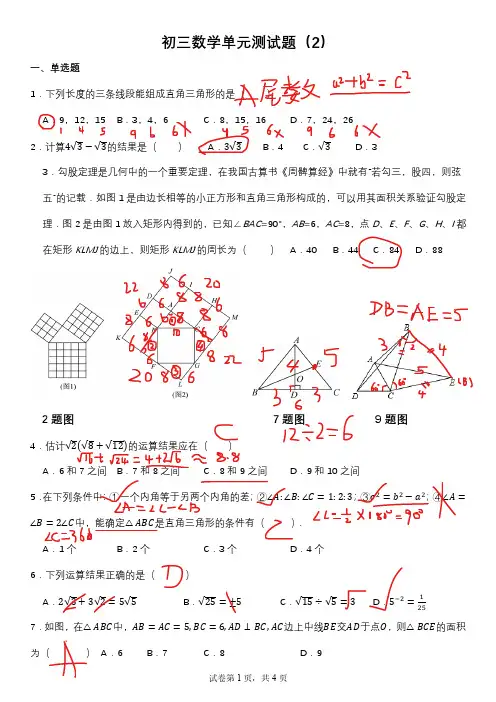 初三数学单元测试题（2）
一、单选题
1．下列长度的三条线段能组成直角三角形的是 A 尾数 a²+b²=c²
A．9，12，15 B．3，4，6 C．8，15，16 D．7，24，26
1 4 5 9 6 6× 4 5 6× 9 6 6×
2．计算4√3－√3的结果是（ ） A．3√3 B．4 C．√3 D．3
3．勾股定理是几何中的一个重要定理，在我国古算书《周髀算经》中就有“若勾三，股四，则弦
五”的记载．如图 1 是由边长相等的小正方形和直角三角形构成的，可以用其面积关系验证勾股定
理．图 2 是由图 1 放入矩形内得到的，已知∠BAC=90°，AB=6，AC=8，点 D、E、F、G、H、I 都
在矩形 KLMJ 的边上，则矩形 KLMJ 的周长为（ ） A．40 B．44 C．84 D．88
J
22 8 6 20
D I
E A H
K B C M
10
F G
20 8 6 22
L
(图1) (图2)
A
5 4 5
O E
B 3 D 3 C
6
DB=AE=5
B
3 1 2 4
A 5
D 60° 60° C 4 E (B)
2题图 7题图 9题图
12÷2=6
4．估计√2(√8+√12)的运算结果应在（ C ）
√16+√24=4+2√6≈8.8
A．6 和 7 之间 B．7 和 8 之间 C．8 和 9 之间 D．9 和 10 之间
5．在下列条件中: ①一个内角等于另两个内角的差; ②∠A:∠B:∠C = 1:2:3; ③a² = b² − a²; ④∠A =
∠A=∠C−∠B
∠B = 2∠C中，能确定△ABC是直角三角形的条件有（ ）．
∠C=½×180°=90°
∠C=36°
A．1 个 B．2 个 C．3 个 D．4 个
6．下列运算结果正确的是（ D ）
A．2√3 + 3√2 = 5√5 B．√25 = ±5 C．√15 ÷ √5 = 3 D．5⁻² = 1/25
7．如图，在△ABC中，AB = AC = 5, BC = 6, AD ⊥ BC, AC边上中线BE交AD于点O，则△BCE的面积
为（ A ） A．6 B．7 C．8 D．9
试卷第 1 页，共 4 页